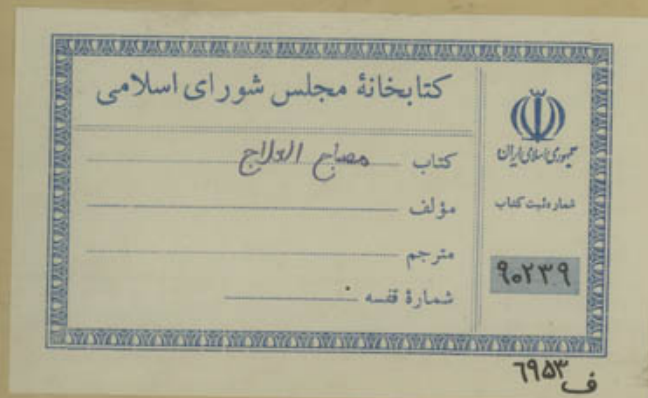 کتابخانهٔ مجلس شورای اسلامی
کتاب مصباح العلاج
مؤلف
مترجم
شمارهٔ قفسه
جمهوری اسلامی ایران
شماره ثبت کتاب
۹۰۲۳۹
ف ۶۹۵۳